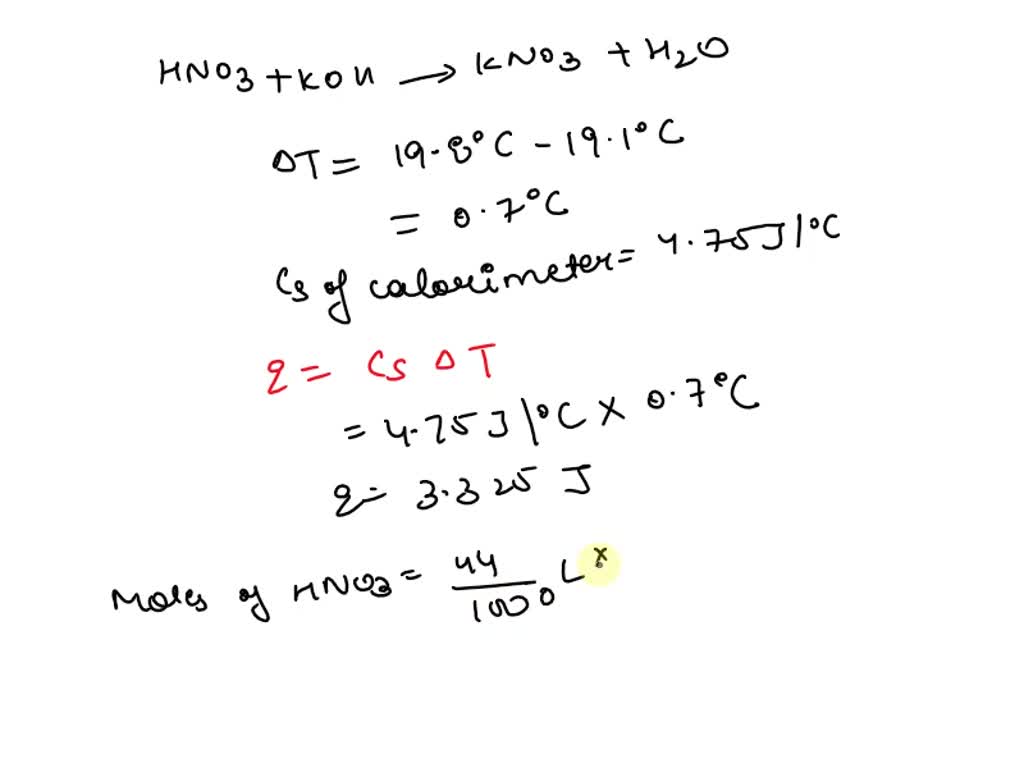 HNO3 + KOH → KNO3 + H2O
ΔT = 19.8°C - 19.1°C
= 0.7°C
Cs of calorimeter = 4.75 J/°C
q = Cs ΔT
= 4.75 J/°C × 0.7°C
q = 3.325 J
Moles of HNO3 = 44/1000 L ×